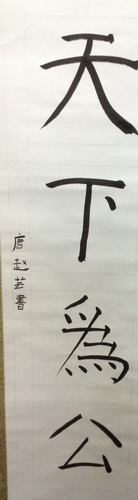 天下爲公
唐赵芸書